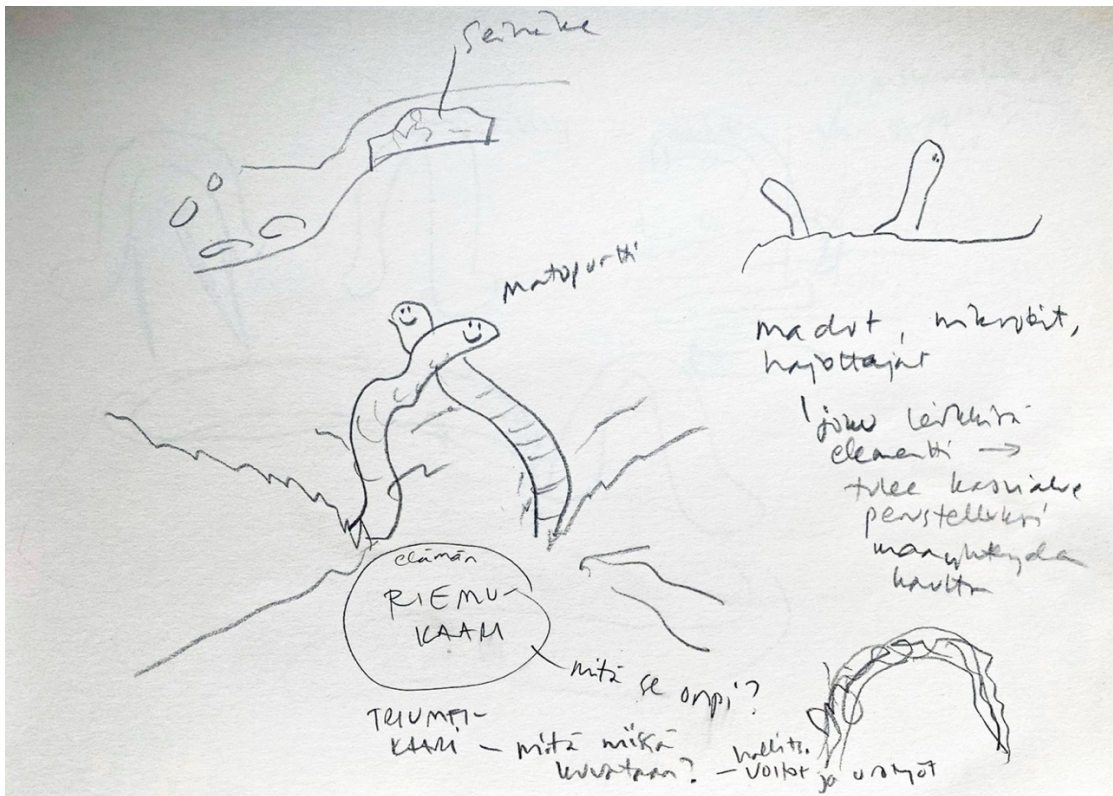 Seinäke
Matoportti
madot, mikrobit,
hajottajat
joku leikkisä
elementti →
tulee
perustelluksi
kautta
elämän
RIEMU-
KAARI
mitä se onpi?
TRIUMFI-
KAARI – mitä niissä
kuvataan? – hallits.
voitot ja urotyöt